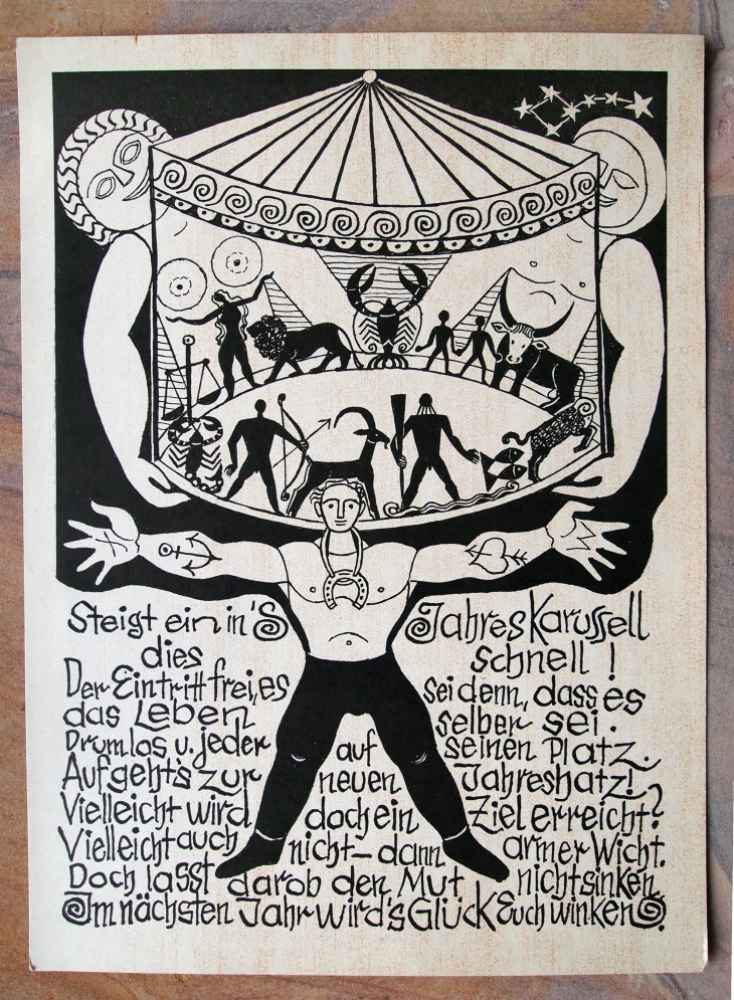 Steigt ein in's Jahreskarussell
dies schnell!
Der Eintritt frei, es sei denn, dass es
das Leben selber sei.
Drum los u. jeder auf seinen Platz.
Auf geht's zur neuen Jahreshatz!
Vielleicht wird doch ein Ziel erreicht?
Vielleicht auch nicht – dann armer Wicht.
Doch lasst darob den Mut nicht sinken
Im nächsten Jahr wird's Glück Euch winken.